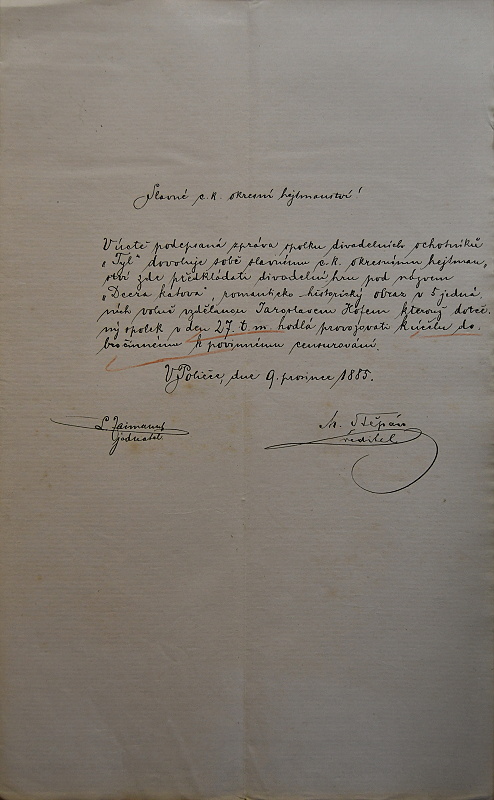 Slavné c. k. okresní hejtmanství!
V úctě podepsaná správa spolku divadelních ochotníků
„Tyl“ dovoluje sobě slavnému c. k. okresnímu hejtman„
ství zde předkládati divadelní hru pod názvem
„Dcera katova“, romanticko-historický obraz v 5 jedná„
ních volně vzdělanou Jaroslavem Hofem kterouž dotče„
ný spolek v den 27. t. m. hodlá provozovati k účelu do„
bročinnému k povinnému censurování.
V Poličce, dne 9. prosince 1885.
Fr. Štěpán
jednatel.
ředitel